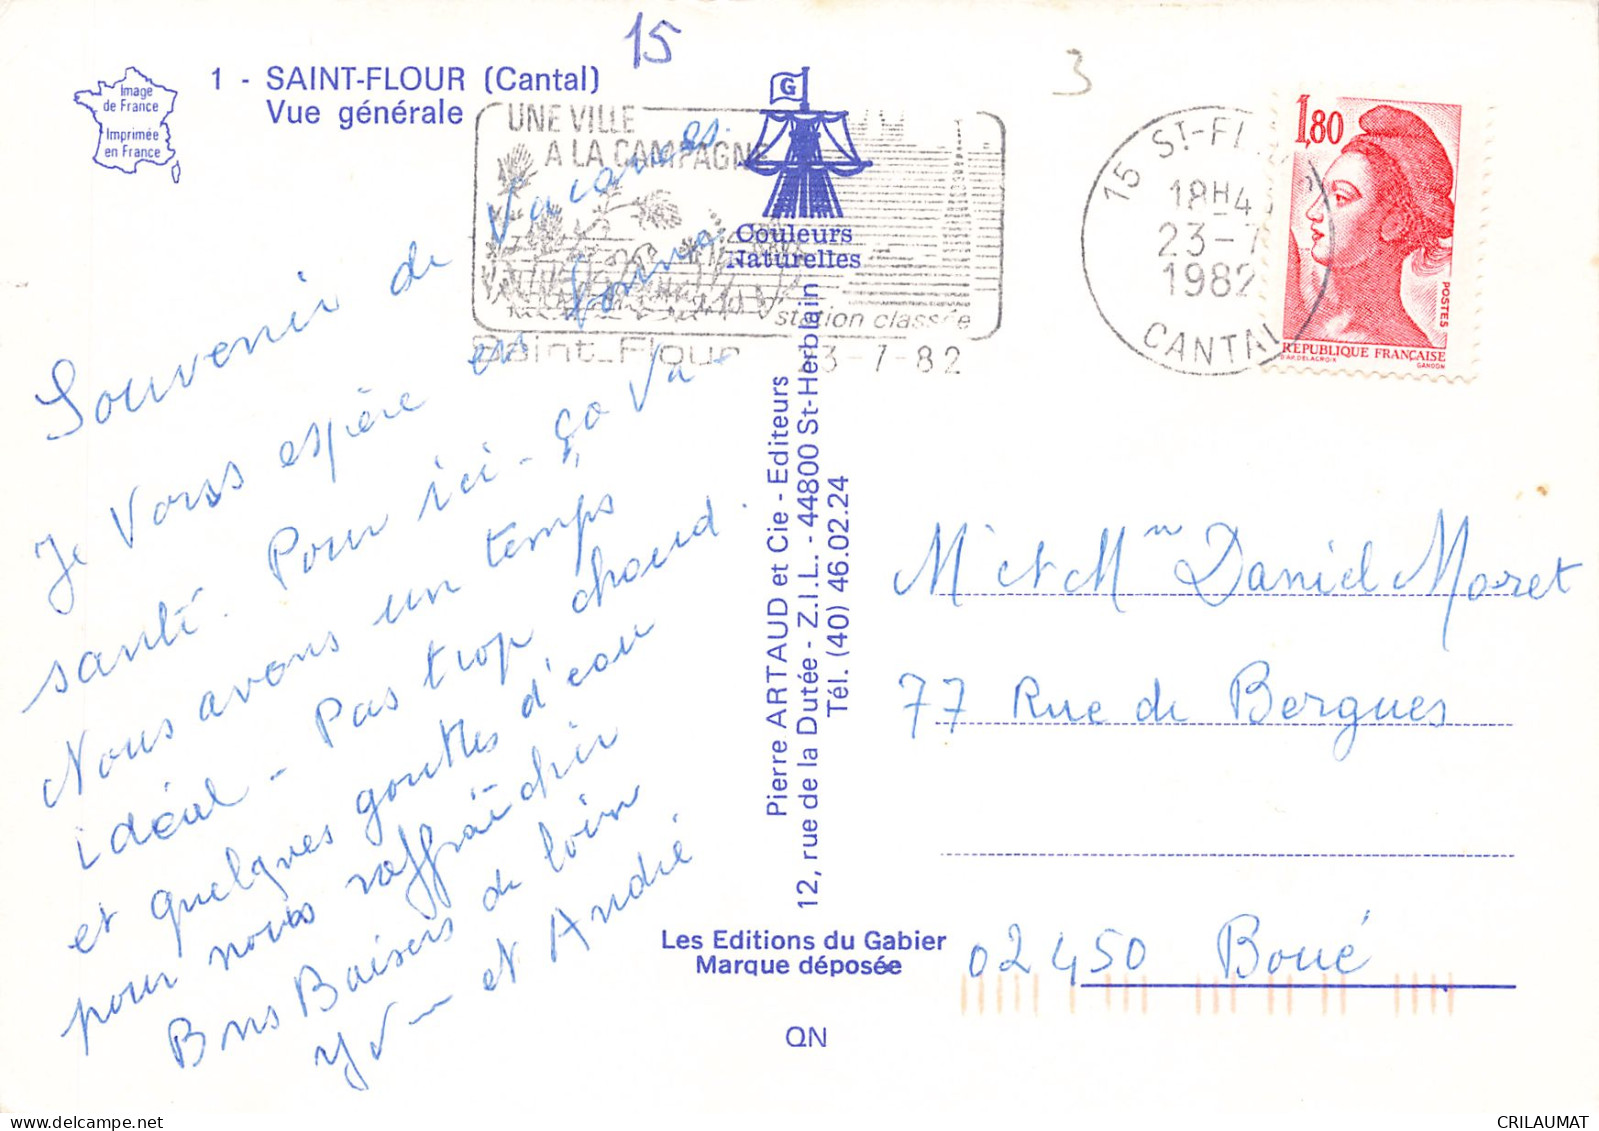 15
3
Image
de France
Imprimée
en France
1 - SAINT-FLOUR (Cantal)
Vue générale
UNE VILLE
A LA CAMPAGNE
station classée
Saint-Flour 23-7-82
G
Couleurs
Naturelles
15 ST-FL
18H4
23-7
1982
CANTAL
1,80
POSTES
RÉPUBLIQUE FRANÇAISE
D'AP. DELACROIX
GANDON
Souvenir de Vacances.
Je Vous espère en forme
santé. Pour ici - "ça Va -
Nous avons un temps
idéal - Pas trop chaud.
et quelques gouttes d'eau
pour nous raffraîchir
Bns Baisers de loin
et André
Pierre ARTAUD et Cie - Editeurs
12, rue de la Dutée - Z.I.L. - 44800 St-Herblain
Tél. (40) 46.02.24
Les Editions du Gabier
Marque déposée
QN
Mr et Mme Daniel Moret
77 Rue de Bergues
02450 Boué
CRILAUMAT